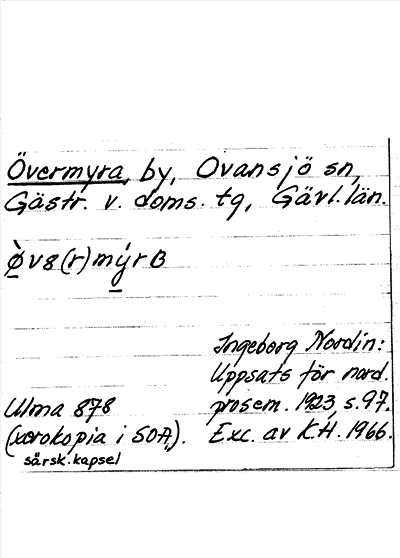 Övermyra, by, Ovansjö sn,
Gästr. v. doms. tg, Gävl. län.
ø̀vɞ(r)mýrɞ
Ingeborg Nordin:
Uppsats för nord.
prosem. 1923, s. 97.
Exc. av K.H. 1966.
Ulma 878
(xerokopia i SOA).
särsk. kapsel